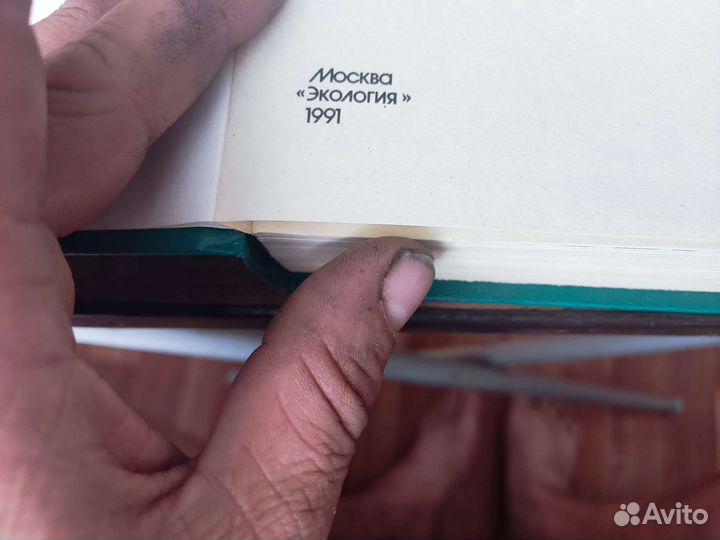 Москва
«Экология»
1991
Avito